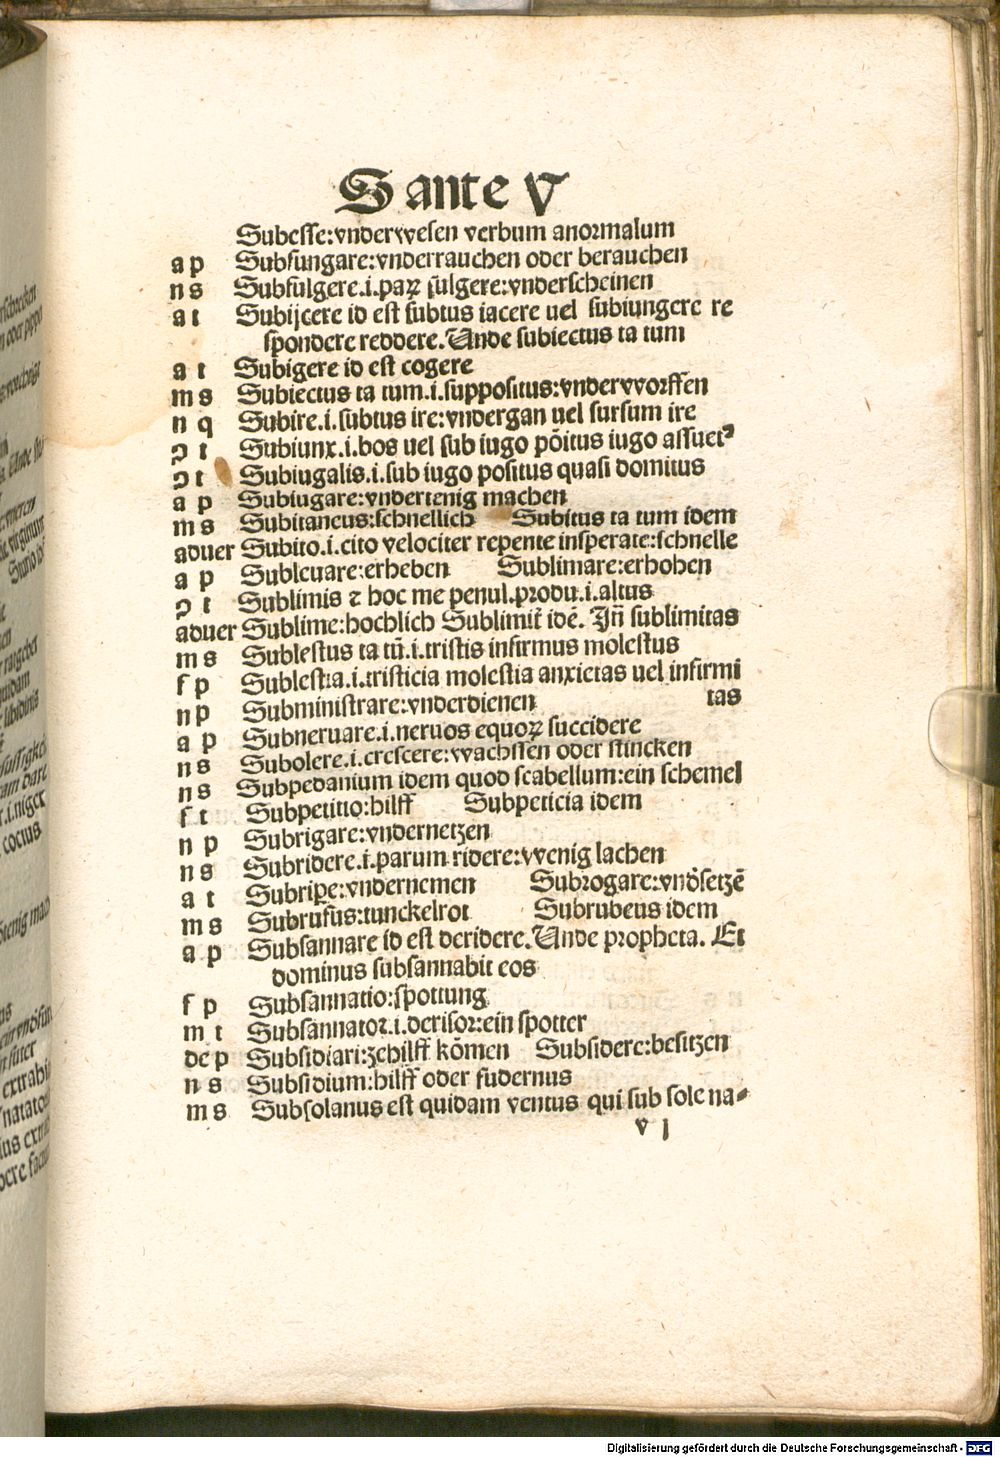 S ante V
Subesse:vnderwesen verbum anormalum
a p Subfungare:vnderrauchen oder berauchen
n s Subfulgere.i.paꝝ fulgere:vnderscheinen
a t Subijcere id est subtus iacere uel subiungere re
spondere reddere. Unde subiectus ta tum
a t Subigere id est cogere
m s Subiectus ta tum.i.suppositus:vndervvorffen
n q Subire.i.subtus ire:vndergan uel sursum ire
ꝯ t Subiunx.i.bos uel sub iugo põitus iugo assuetꝰ
ꝯ t Subiugalis.i.sub iugo positus quasi domitus
a p Subiugare:vndertenig machen
m s Subitaneus:schnellich Subitus ta tum idem
aduer Subito.i.cito velociter repente insperate:schnelle
a p Subleuare:erheben Sublimare:erhohen
ꝯ t Sublimis ⁊ hoc me penul.produ.i.altus
aduer Sublime:hochlich Sublimit̃ idē. Jñ sublimitas
m s Sublestus ta tū.i.tristis infirmus molestus
f p Sublestia.i.tristicia molestia anxietas uel infirmi
n p Subministrare:vnderdienen tas
a p Subneruare.i.neruos equoꝝ succidere
n s Subolere.i.crescere:wachssen oder stincken
n s Subpedanium idem quod scabellum:ein schemel
f t Subpetitio:hilff Subpeticia idem
n p Subrigare:vndernetzen
n s Subridere.i.parum ridere:vvenig lachen
a t Subriꝑe:vndernemen Subrogare:vnd̕setzē
m s Subrufus:tunckelrot Subrubeus idem
a p Subsannare id est deridere. Unde propheta. Et
dominus subsannabit eos
f p Subsannatio:spottung
m t Subsannator.i.derisor:ein spotter
de p Subsidiari:zehilff kōmen Subsidere:besitzen
n s Subsidium:hilff oder fudernus
m s Subsolanus est quidam ventus qui sub sole na⸗
v j
Digitalisierung gefördert durch die Deutsche Forschungsgemeinschaft - DFG